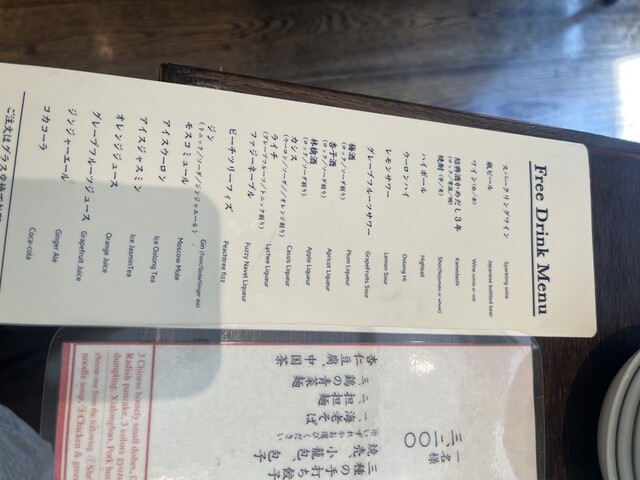 Free Drink Menu
スパークリングワイン Sparkling wine
瓶ビール Japanese bottled beer
ワイン(赤/白) Wine (white or red)
紹興酒かめだし3年 Kamedashi
焼酎(芋/麦) Shochu(potato or wheat)
ハイボール Highball
ウーロンハイ Oolong Hi
レモンサワー Lemon Sour
グレープフルーツサワー GrapeFruits Sour
梅酒 Plum Liqueur
(ロック/ソーダ割り)
杏子酒 Apricot Liqueur
(ロック/ソーダ割り)
林檎酒 Apple Liqueur
(ロック/ソーダ割り)
カシス Cassis Liqueur
(ウーロン/ソーダ/オレンジ割り)
ライチ Lychee Liqueur
(グレープフルーツ/トニック割り)
ファジーネーブル Fuzzy Navel Liqueur
ピーチツリーフィズ Peachtree fizz
ジン Gin (Tonic/Soda/Ginger ale)
(トニック/ソーダ/ジンジャーエール)
モスコミュール Moscow Mule
アイスウーロン Ice Oolong Tea
アイスジャスミン Ice JasminTea
オレンジジュース Orange Juice
グレープフルーツジュース Grapefruit Juice
ジンジャーエール Ginger Ale
コカコーラ Coca-cola
ご注文はグラス交換
一名様
三二〇〇
三種の手打ち餃子
焼売、小籠包
※いずれかお選びください
一、海老そば
二、担々麺
三、鶏の青菜麺
中国茶
杏仁豆腐
3 Chinese homely small dishes,
Radish pancake, 3 colors gyoza
dumpling, Xiolongbao, Pork
choose one from the following ①
noodle soup, ③ Chicken & gree